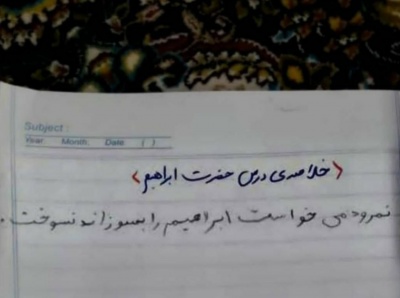 Subject:
Year. Month. Date. ( )
﴿خلاصه‌ی درس حضرت ابراهیم﴾
نمرود می خواست ابراهیم را بسوزاند نسوخت.